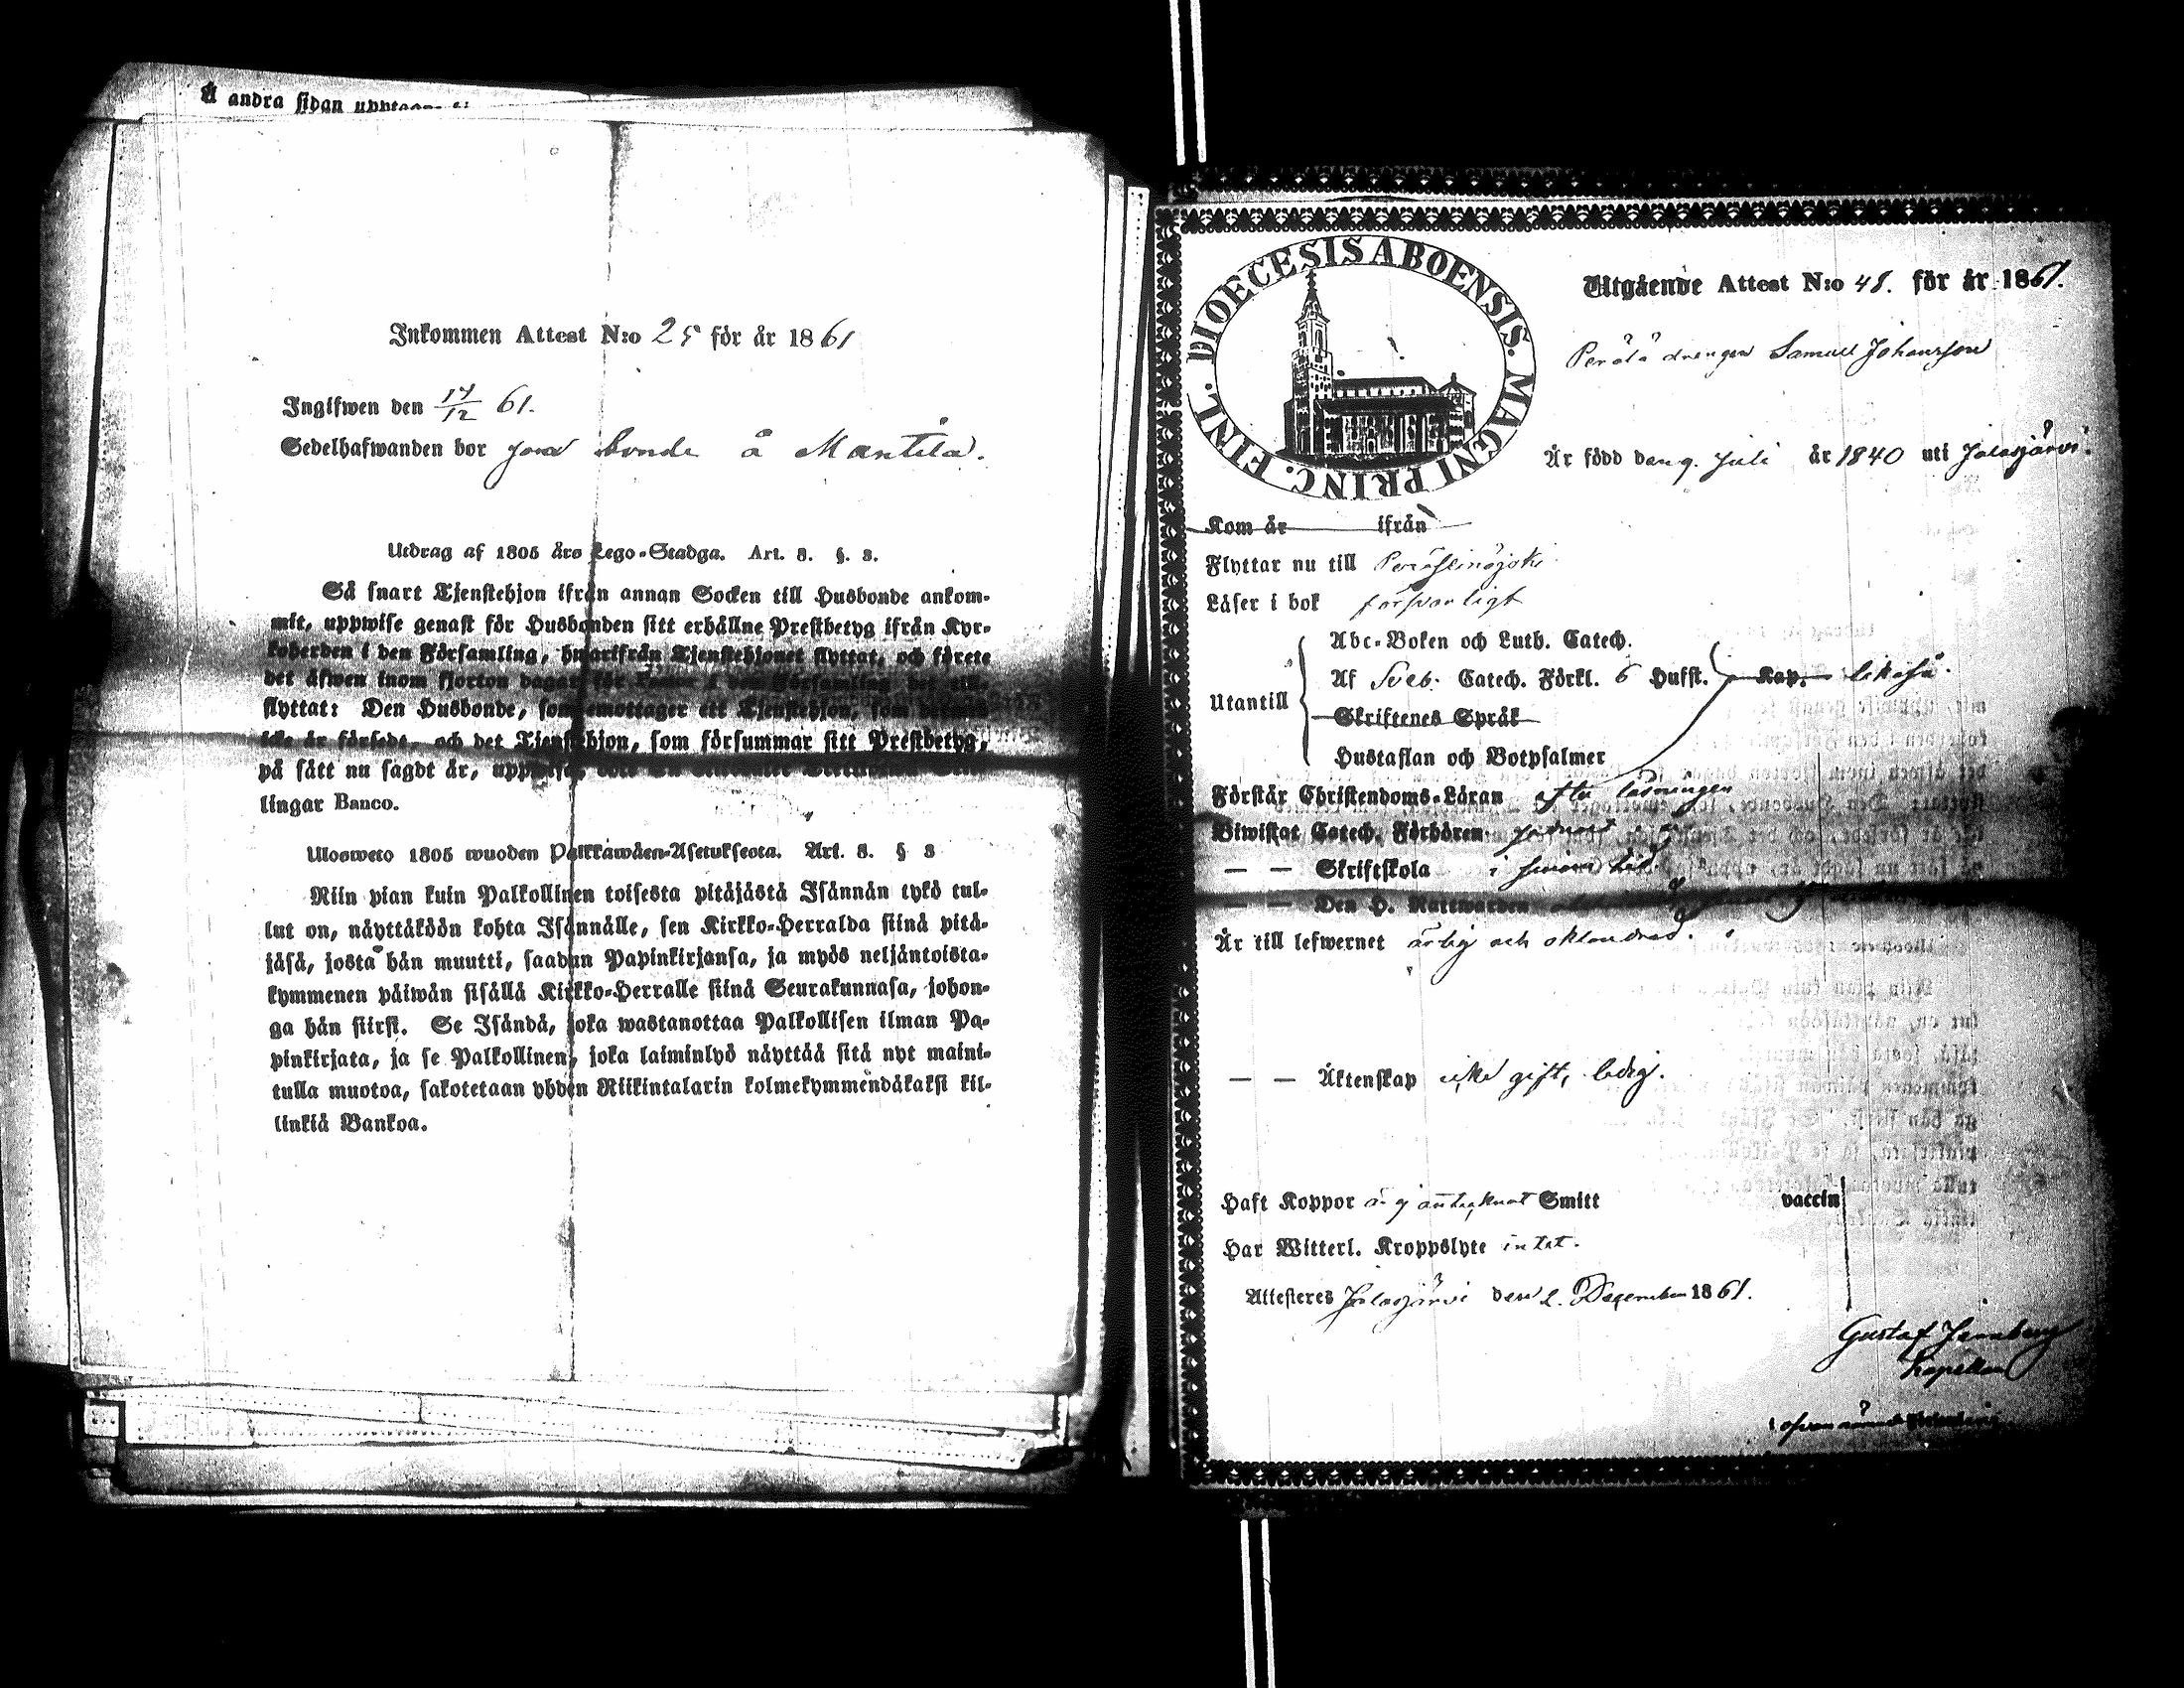 Å andra sidan
Inkommen Attest N:o 25 för år 1861
Ingifwen den 17/12 61.
Sedelhafwanden bor som bonde å Mantila.
Utdrag af 1805 års Lego-Stadga. Art. 8. §. 3.
Så snart Tjenstehjon ifrån annan Socken till Husbonde ankom-
mit, uppwise genast för Husbonden sitt erhållne Prestbetyg ifrån Kyr-
koherden i den Församling, hwarifrån Tjenstehjonet flyttat, och förete
det äfwen inom fjorton dagar för
flyttat: Den Husbonde, som emottager ett Tjenstehjon, som
icke är försedt, och det Tjenstehjon, som försummar sitt Prestbetyg,
på sätt nu sagdt är,
lingar Banco.
Ulosweto 1805 wuoden Palkkawäen-Asetuksesta. Art. 8. § 3
Niin pian kuin Palkollinen toisesta pitäjästä Isännän tykö tul-
lut on, näyttäköön kohta Isännälle, sen Kirkko-Herralda siinä pitä-
jäsä, josta hän muutti, saadun Papinkirjansa, ja myös neljäntoista-
kymmenen päiwän sisällä Kirkko-Herralle siinä Seurakunnasa, johon-
ga hän siirsi. Se Isändä, joka wastanottaa Palkollisen ilman Pa-
pinkirjata, ja se Palkollinen, joka laiminlyö näyttää sitä nyt maini-
tulla muotoa, sakotetaan yhden Riikintalarin kolmekymmendäkaksi kil-
linkiä Bankoa.
DIOECESIS ABOENSIS. MAGNI PRINC. FINL.
Utgående Attest N:o 48. för år 1861.
Perälä drengen Samuel Johansson
Är född den 9. Juli år 1840 uti Jalasjärvi.
Kom år ifrån
Flyttar nu till Peräseinäjoki
Läser i bok försvarligt
Abc-Boken och Luth. Catech.
Utantill
Af Sveb. Catech. Förkl. 6 Hufst. Kap. likaså
Skriftenes Språk
Hustaflan och Botpsalmer
Förstår Christendoms-Läran efter läsningen
Biwistat Catech. Förhören
— — Skriftskola i sinom tid
— — Den H. Nattwarden
Är till lefwernet ärlig och oklandrad.
— — Äktenskap icke gift, ledig.
Haft Koppor är ej antecknat Smitt vaccin
Har Witterl. Kroppslyte intet.
Attesteres Jalasjärvi den 2. December 1861.
Gustaf
Kapellan